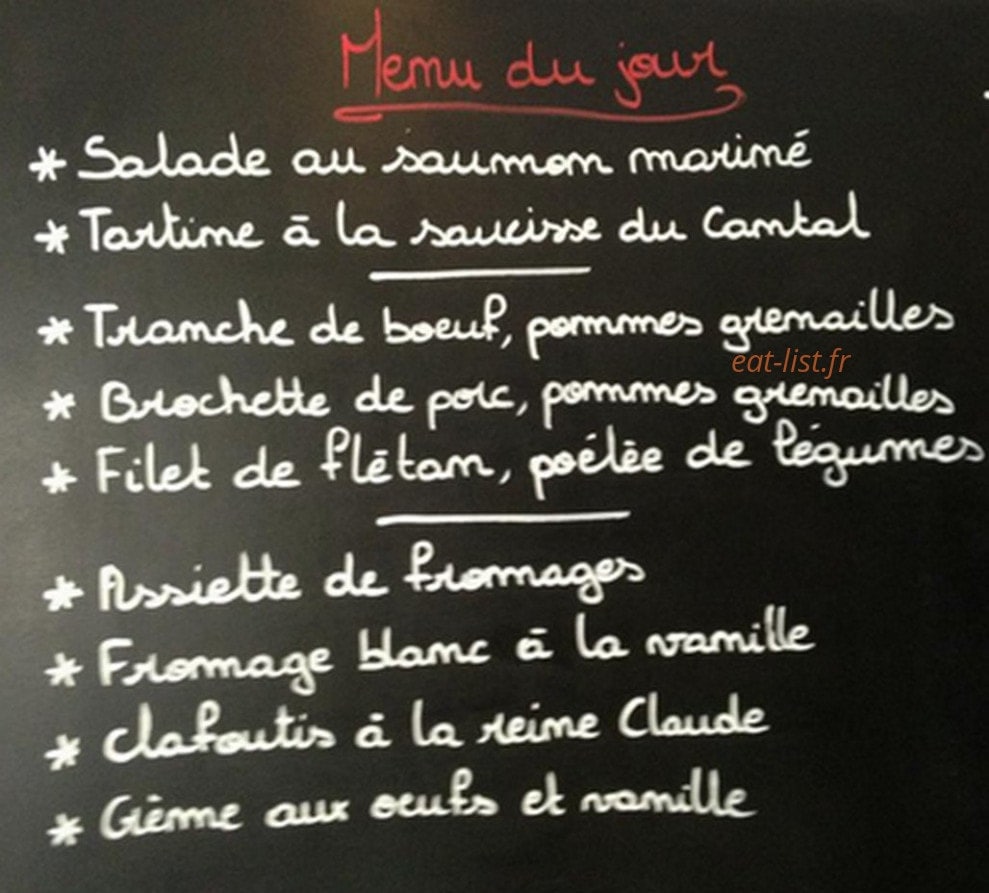 Menu du jour
* Salade au saumon mariné
* Tartine à la saucisse du Cantal
* Tranche de boeuf, pommes grenailles
eat-list.fr
* Brochette de porc, pommes grenailles
* Filet de flétan, poélée de légumes
* Assiette de fromages
* Fromage blanc à la vanille
* Clafoutis à la reine Claude
* Crème aux oeufs et vanille